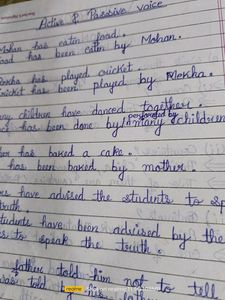 Active & Passive voice
Mohan has eaten food.
Food has been eaten by Mohan.
Rekha has played cricket.
Cricket has been played by Rekha.
many children have danced together.
has been performed by
done by many children
has baked a cake.
has been baked by mother.
have advised the students to sp
truth.
students have been advised by the
to speak the truth.
father told him not to tell
was told by his father
realme